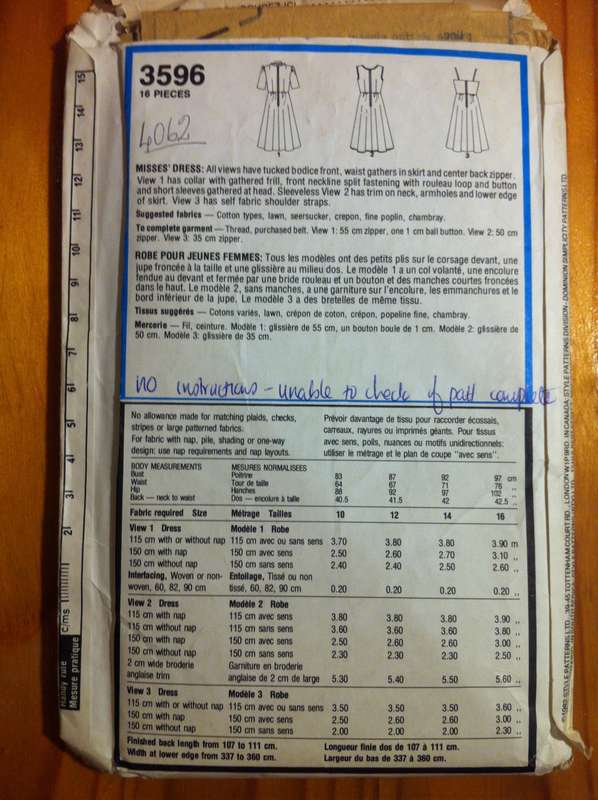 3596
16 PIECES
4062
1
2
3
MISSES' DRESS: All views have tucked bodice front, waist gathers in skirt and center back zipper.
View 1 has collar with gathered frill, front neckline split fastening with rouleau loop and button
and short sleeves gathered at head. Sleeveless View 2 has trim on neck, armholes and lower edge
of skirt. View 3 has self fabric shoulder straps.
Suggested fabrics — Cotton types, lawn, seersucker, crepon, fine poplin, chambray.
To complete garment — Thread, purchased belt. View 1: 55 cm zipper, one 1 cm ball button. View 2: 50 cm
zipper. View 3: 35 cm zipper.
ROBE POUR JEUNES FEMMES: Tous les modèles ont des petits plis sur le corsage devant, une
jupe froncée à la taille et une glissière au milieu dos. Le modèle 1 a un col volanté, une encolure
fendue au devant et fermée par une bride rouleau et un bouton et des manches courtes froncées
dans le haut. Le modèle 2, sans manches, a une garniture sur l'encolure, les emmanchures et le
bord inférieur de la jupe. Le modèle 3 a des bretelles de même tissu.
Tissus suggérés — Cotons variés, lawn, crépon de coton, crépon, popeline fine, chambray.
Mercerie — Fil, ceinture. Modèle 1: glissière de 55 cm, un bouton boule de 1 cm. Modèle 2: glissière de
50 cm. Modèle 3: glissière de 35 cm.
no instructions - unable to check if patt complete
No allowance made for matching plaids, checks,
stripes or large patterned fabrics.
For fabric with nap, pile, shading or one-way
design; use nap requirements and nap layouts.
Prévoir davantage de tissu pour raccorder écossais,
carreaux, rayures ou imprimés géants. Pour tissus
avec sens, poils, nuances ou motifs unidirectionnels:
utiliser le métrage et le plan de coupe "avec sens".
BODY MEASUREMENTS MESURES NORMALISEES
Bust Poitrine 83 87 92 97 cm
Waist Tour de taille 64 67 71 76 ,,
Hip Hanches 88 92 97 102 ,,
Back — neck to waist Dos — encolure à taille 40.5 41.5 42 42.5 ,,
Fabric required Size Métrage Tailles 10 12 14 16
View 1 Dress Modèle 1 Robe
115 cm with or without nap 115 cm avec ou sans sens 3.70 3.80 3.80 3.90 m
150 cm with nap 150 cm avec sens 2.50 2.60 2.70 3.10 ,,
150 cm without nap 150 cm sans sens 2.40 2.40 2.50 2.60 ,,
Interfacing, Woven or non- Entoilage, Tissé ou non
woven, 60, 82, 90 cm tissé, 60, 82, 90 cm 0.20 0.20 0.20 0.20 ,,
View 2 Dress Modèle 2 Robe
115 cm with nap 115 cm avec sens 3.80 3.80 3.80 3.90 ,,
115 cm without nap 115 cm sans sens 3.60 3.60 3.60 3.80 ,,
150 cm with nap 150 cm avec sens 2.50 2.60 2.60 3.00 ,,
150 cm without nap 150 cm sans sens 2.30 2.30 2.30 2.50 ,,
2 cm wide broderie Garniture en broderie
anglaise trim anglaise de 2 cm de large 5.30 5.40 5.50 5.60 ,,
View 3 Dress Modèle 3 Robe
115 cm with or without nap 115 cm avec ou sans sens 3.50 3.50 3.50 3.60 ,,
150 cm with nap 150 cm avec sens 2.50 2.60 2.60 3.00 ,,
150 cm without nap 150 cm sans sens 2.00 2.00 2.00 2.30 ,,
Finished back length from 107 to 111 cm. Longueur finie dos de 107 à 111 cm.
Width at lower edge from 337 to 360 cm. Largeur du bas de 337 à 360 cm.
Handy rule c/ms
Mesure pratique
2 3 4 5 6 7 8 9 10 11 12 13 14 15
STYLE PATTERNS LTD., 39-45 TOTTENHAM COURT RD., LONDON W1P 9RD. IN CANADA: STYLE PATTERNS DIVISION - DOMINION SIMPLICITY PATTERNS LTD.